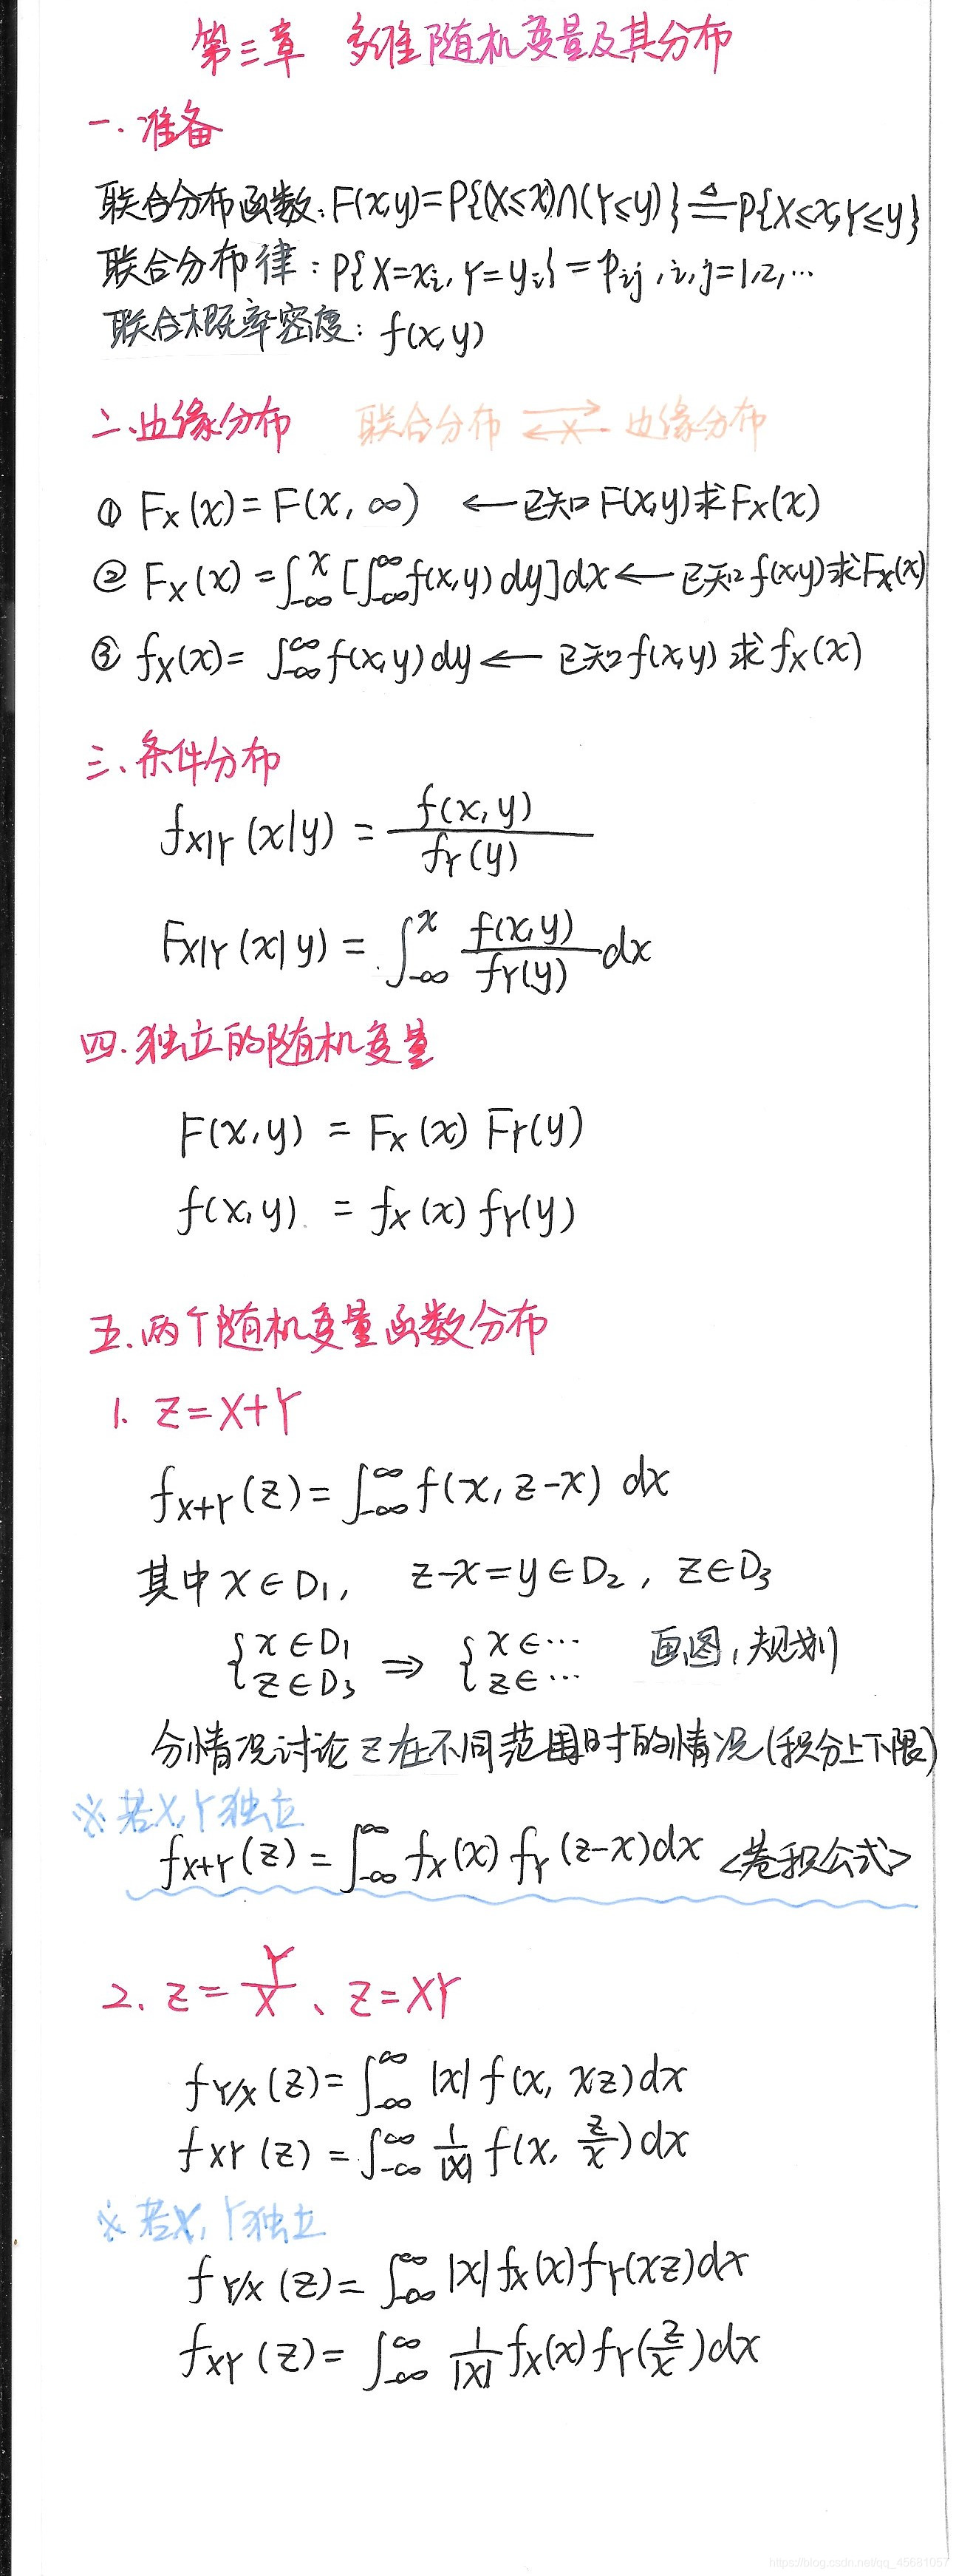 第三章 多维随机变量及其分布
一.准备
联合分布函数:F(x,y)=P{(X≤x)∩(Y≤y)}≜P{X≤x,Y≤y}
联合分布律:P{X=xᵢ,Y=yᵢ}=pᵢⱼ,i,j=1,2,…
联合概率密度:f(x,y)
二、边缘分布 联合分布 ⇄(×) 边缘分布
① F_X(x)=F(x,∞) ←已知F(x,y)求F_X(x)
② F_X(x)=∫_{-∞}^{x}[∫_{-∞}^{∞}f(x,y)dy]dx←已知f(x,y)求F_X(x)
③ f_X(x)=∫_{-∞}^{∞}f(x,y)dy←已知f(x,y)求f_X(x)
三、条件分布
f_{X|Y}(x|y)=f(x,y)/f_Y(y)
F_{X|Y}(x|y)=∫_{-∞}^{x} f(x,y)/f_Y(y) dx
四.独立的随机变量
F(x,y)=F_X(x)F_Y(y)
f(x,y)=f_X(x)f_Y(y)
五.两个随机变量函数分布
1. Z=X+Y
f_{X+Y}(z)=∫_{-∞}^{∞}f(x,z-x)dx
其中x∈D₁, z-x=y∈D₂, z∈D₃
{x∈D₁ z∈D₃ ⇒ {x∈… z∈… 画图,规划
分情况讨论z在不同范围时的情况(积分上下限)
※若X,Y独立
f_{X+Y}(z)=∫_{-∞}^{∞}f_X(x)f_Y(z-x)dx <卷积公式>
2. Z=Y/X、Z=XY
f_{Y/X}(z)=∫_{-∞}^{∞}|x|f(x,xz)dx
f_{XY}(z)=∫_{-∞}^{∞} 1/|x| f(x,z/x)dx
※若X,Y独立
f_{Y/X}(z)=∫_{-∞}^{∞}|x|f_X(x)f_Y(xz)dx
f_{XY}(z)=∫_{-∞}^{∞} 1/|x| f_X(x)f_Y(z/x)dx
https://blog.csdn.net/qq_45681057